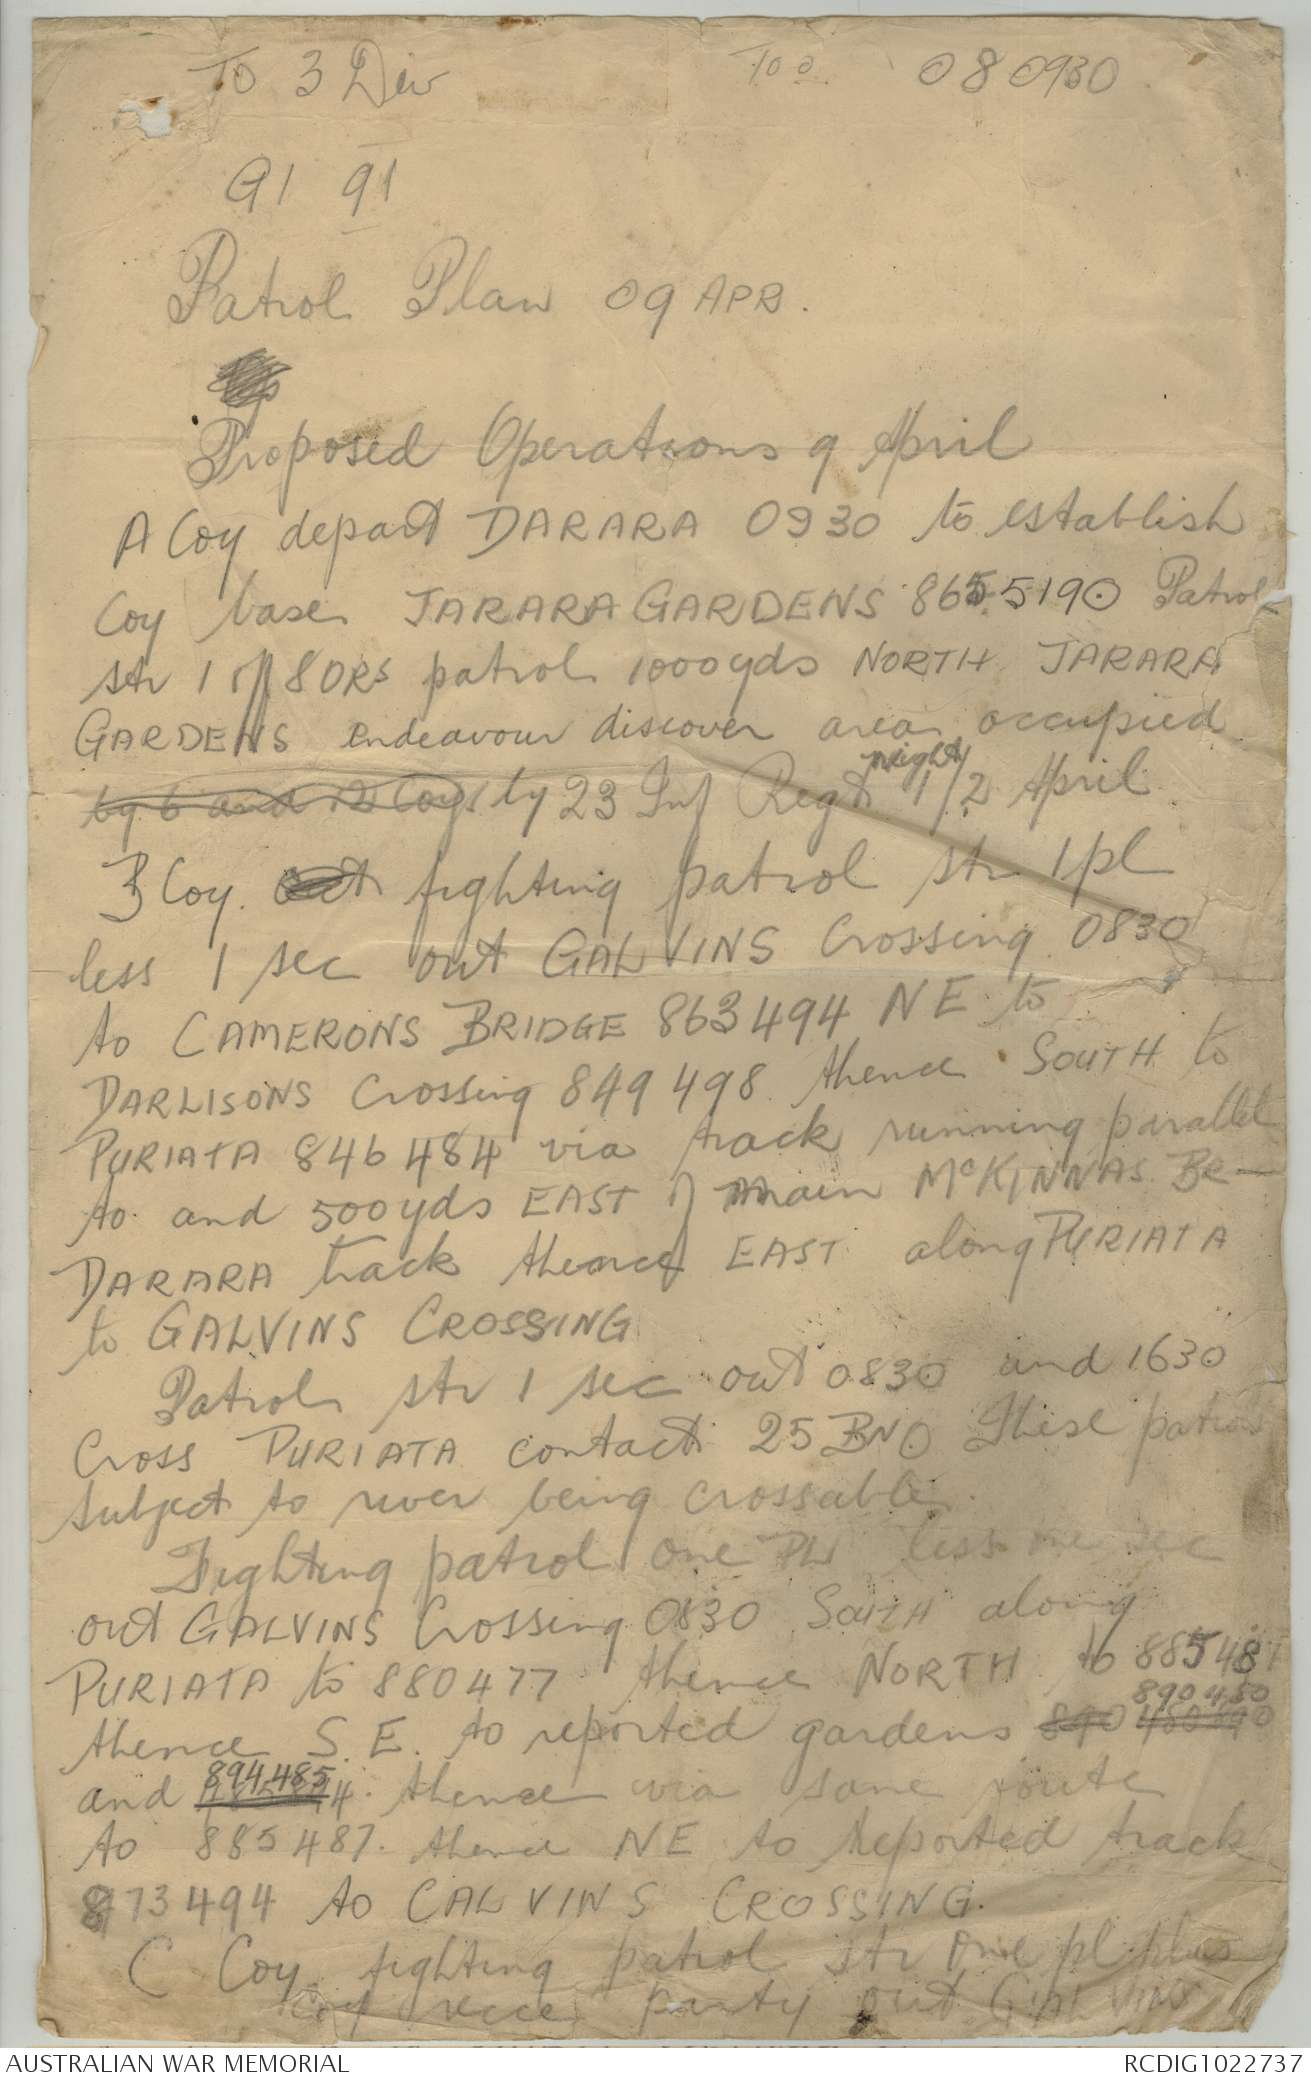 To 3 Div Too 080930
G1 91
Patrol Plan 09 APR.
Proposed Operations 9 April
A Coy depart DARARA 0930 to establish
Coy base JARARA GARDENS 8655190 Patrol
str 1 off 8 ORs patrol 1000yds NORTH JARARA
GARDENS endeavour discover area occupied
by 6 and 12 Coys by 23 Inf Regt night 1/2 April
B Coy. out fighting patrol str 1 pl
less 1 sec out GALVINS Crossing 0830
to CAMERONS BRIDGE 863494 NE to
DARLISONS Crossing 849498 thence SOUTH to
PURIATA 846484 via track running parallel
to and 500yds EAST of main McKINNAS BR —
DARARA track thence EAST along PURIATA
to GALVINS CROSSING
Patrol str 1 sec out 0830 and 1630
Cross PURIATA contact 25 BN. These patrols
subject to river being crossable.
Fighting patrol one PL less one sec
out GALVINS Crossing 0830 SOUTH along
PURIATA to 880477 thence NORTH to 885487
thence S.E. to reported gardens 890 450
and 894485 thence via same route
to 885487. thence NE to reported track
873494 to GALVINS CROSSING.
C Coy fighting patrol str one pl plus
Coy recce party out GALVINS